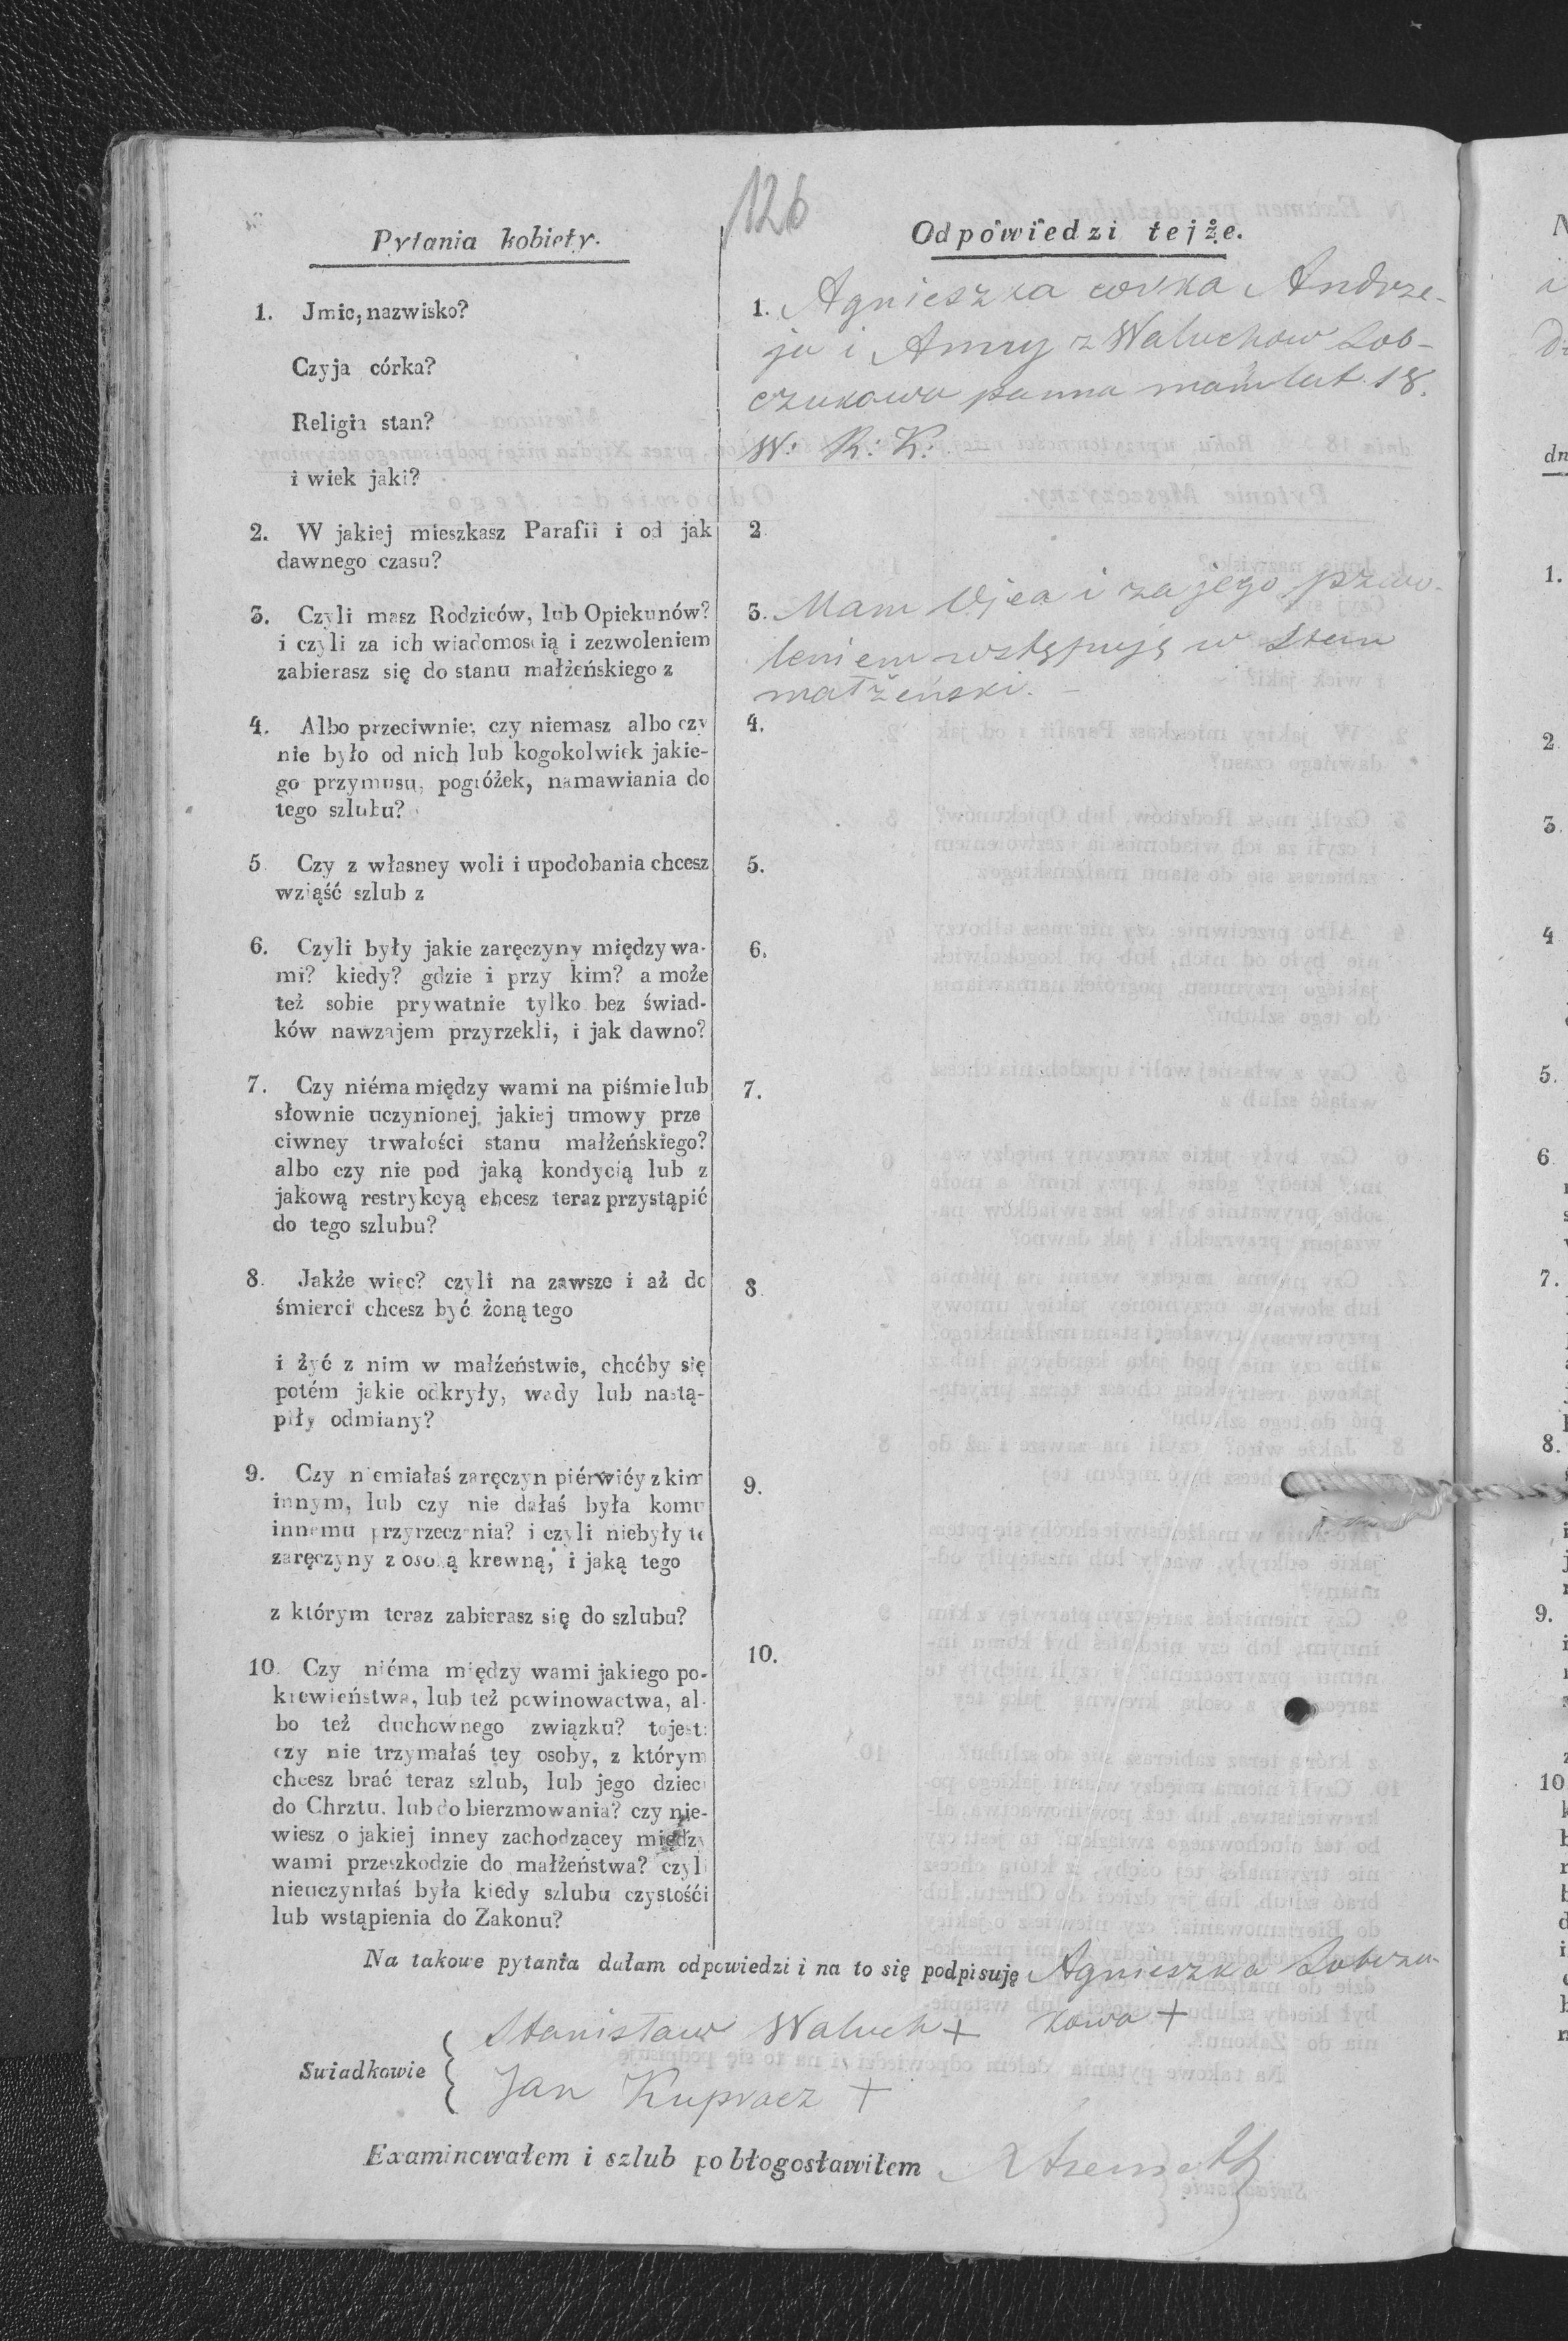 126
Pytania kobiety.
1. Jmie, nazwisko?
Czyja córka?
Religia stan?
i wiek jaki?
2. W jakiej mieszkasz Parafii i od jak
dawnego czasu?
3. Czyli masz Rodziców, lub Opiekunów?
i czyli za ich wiadomością i zezwoleniem
zabierasz się do stanu małżeńskiego z
4. Albo przeciwnie; czy niemasz albo czy
nie było od nich lub kogokolwiek jakie-
go przymusu, pogróżek, namawiania do
tego szlubu?
5 Czy z własney woli i upodobania chcesz
wziąść szlub z
6. Czyli były jakie zaręczyny między wa-
mi? kiedy? gdzie i przy kim? a może
też sobie prywatnie tylko bez świad-
ków nawzajem przyrzekli, i jak dawno?
7. Czy niéma między wami na piśmie lub
słownie uczynionej jakiej umowy prze
ciwney trwałości stanu małżeńskiego?
albo czy nie pod jaką kondycią lub z
jakową restrykcyą chcesz teraz przystąpić
do tego szlubu?
8. Jakże więc? czyli na zawsze i aż do
śmierci chcesz być żoną tego
i żyć z nim w małżeństwie, choćby się
potém jakie odkryły, wady lub nastą-
piły odmiany?
9. Czy niemiałaś zaręczyn piérwiéy z kim
innym, lub czy nie dałaś była komu
innemu przyrzeczenia? i czyli niebyły te
zaręczyny z osobą krewną, i jaką tego
z którym teraz zabierasz się do szlubu?
10. Czy niéma między wami jakiego po-
krewieństwa, lub też powinowactwa, al-
bo też duchownego związku? tojest:
czy nie trzymałaś tey osoby, z którym
chcesz brać teraz szlub, lub jego dzieci
do Chrztu. lub do bierzmowania? czy nie-
wiesz o jakiej inney zachodzącey między
wami przeszkodzie do małżeństwa? czyli
nieuczyniłaś była kiedy szlubu czystośći
lub wstąpienia do Zakonu?
Odpowiedzi tejże.
1. Agnieszka corka Andrze-
ja i Anny z Waluchow Sob-
czukowa panna mam lat 18.
W: R: K:
2.
3. Mam Ojca i za jego pozwo-
leniem wstępuję w Stan
małżeński. -
4.
5.
6.
7.
8.
9.
10.
Na takowe pytania dałam odpowiedzi i na to się podpisuję Agnieszka Sobczu-
kowa +
Swiadkowie { Stanisław Waluch +
Jan Kupracz +
Examinowałem i szlub pobłogosławiłem